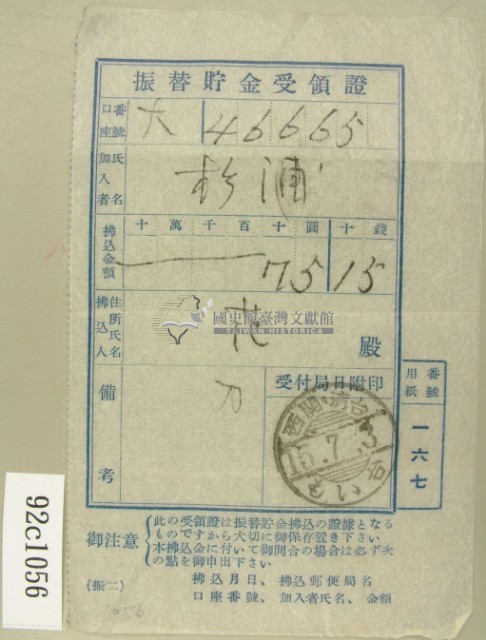 振替貯金受領證
口座番號 大 46665
加入者氏名 杉浦
拂込金額 十萬千百十圓十錢
7515
拂込人住所氏名 花 殿
國史館臺灣文獻館
TAIWAN HISTORICA
備考
受付局日附印
15.7.
用紙番號 一六七
御注意
此の受領證は振替貯金拂込の證據となる
ものですから大切に御保存置き下さい
本拂込金に付いて御問合の場合は必ず次
の點を御申出下さい
拂込月日、拂込郵便局名
口座番號、加入者氏名、金額
(振二)
1056
92c1056